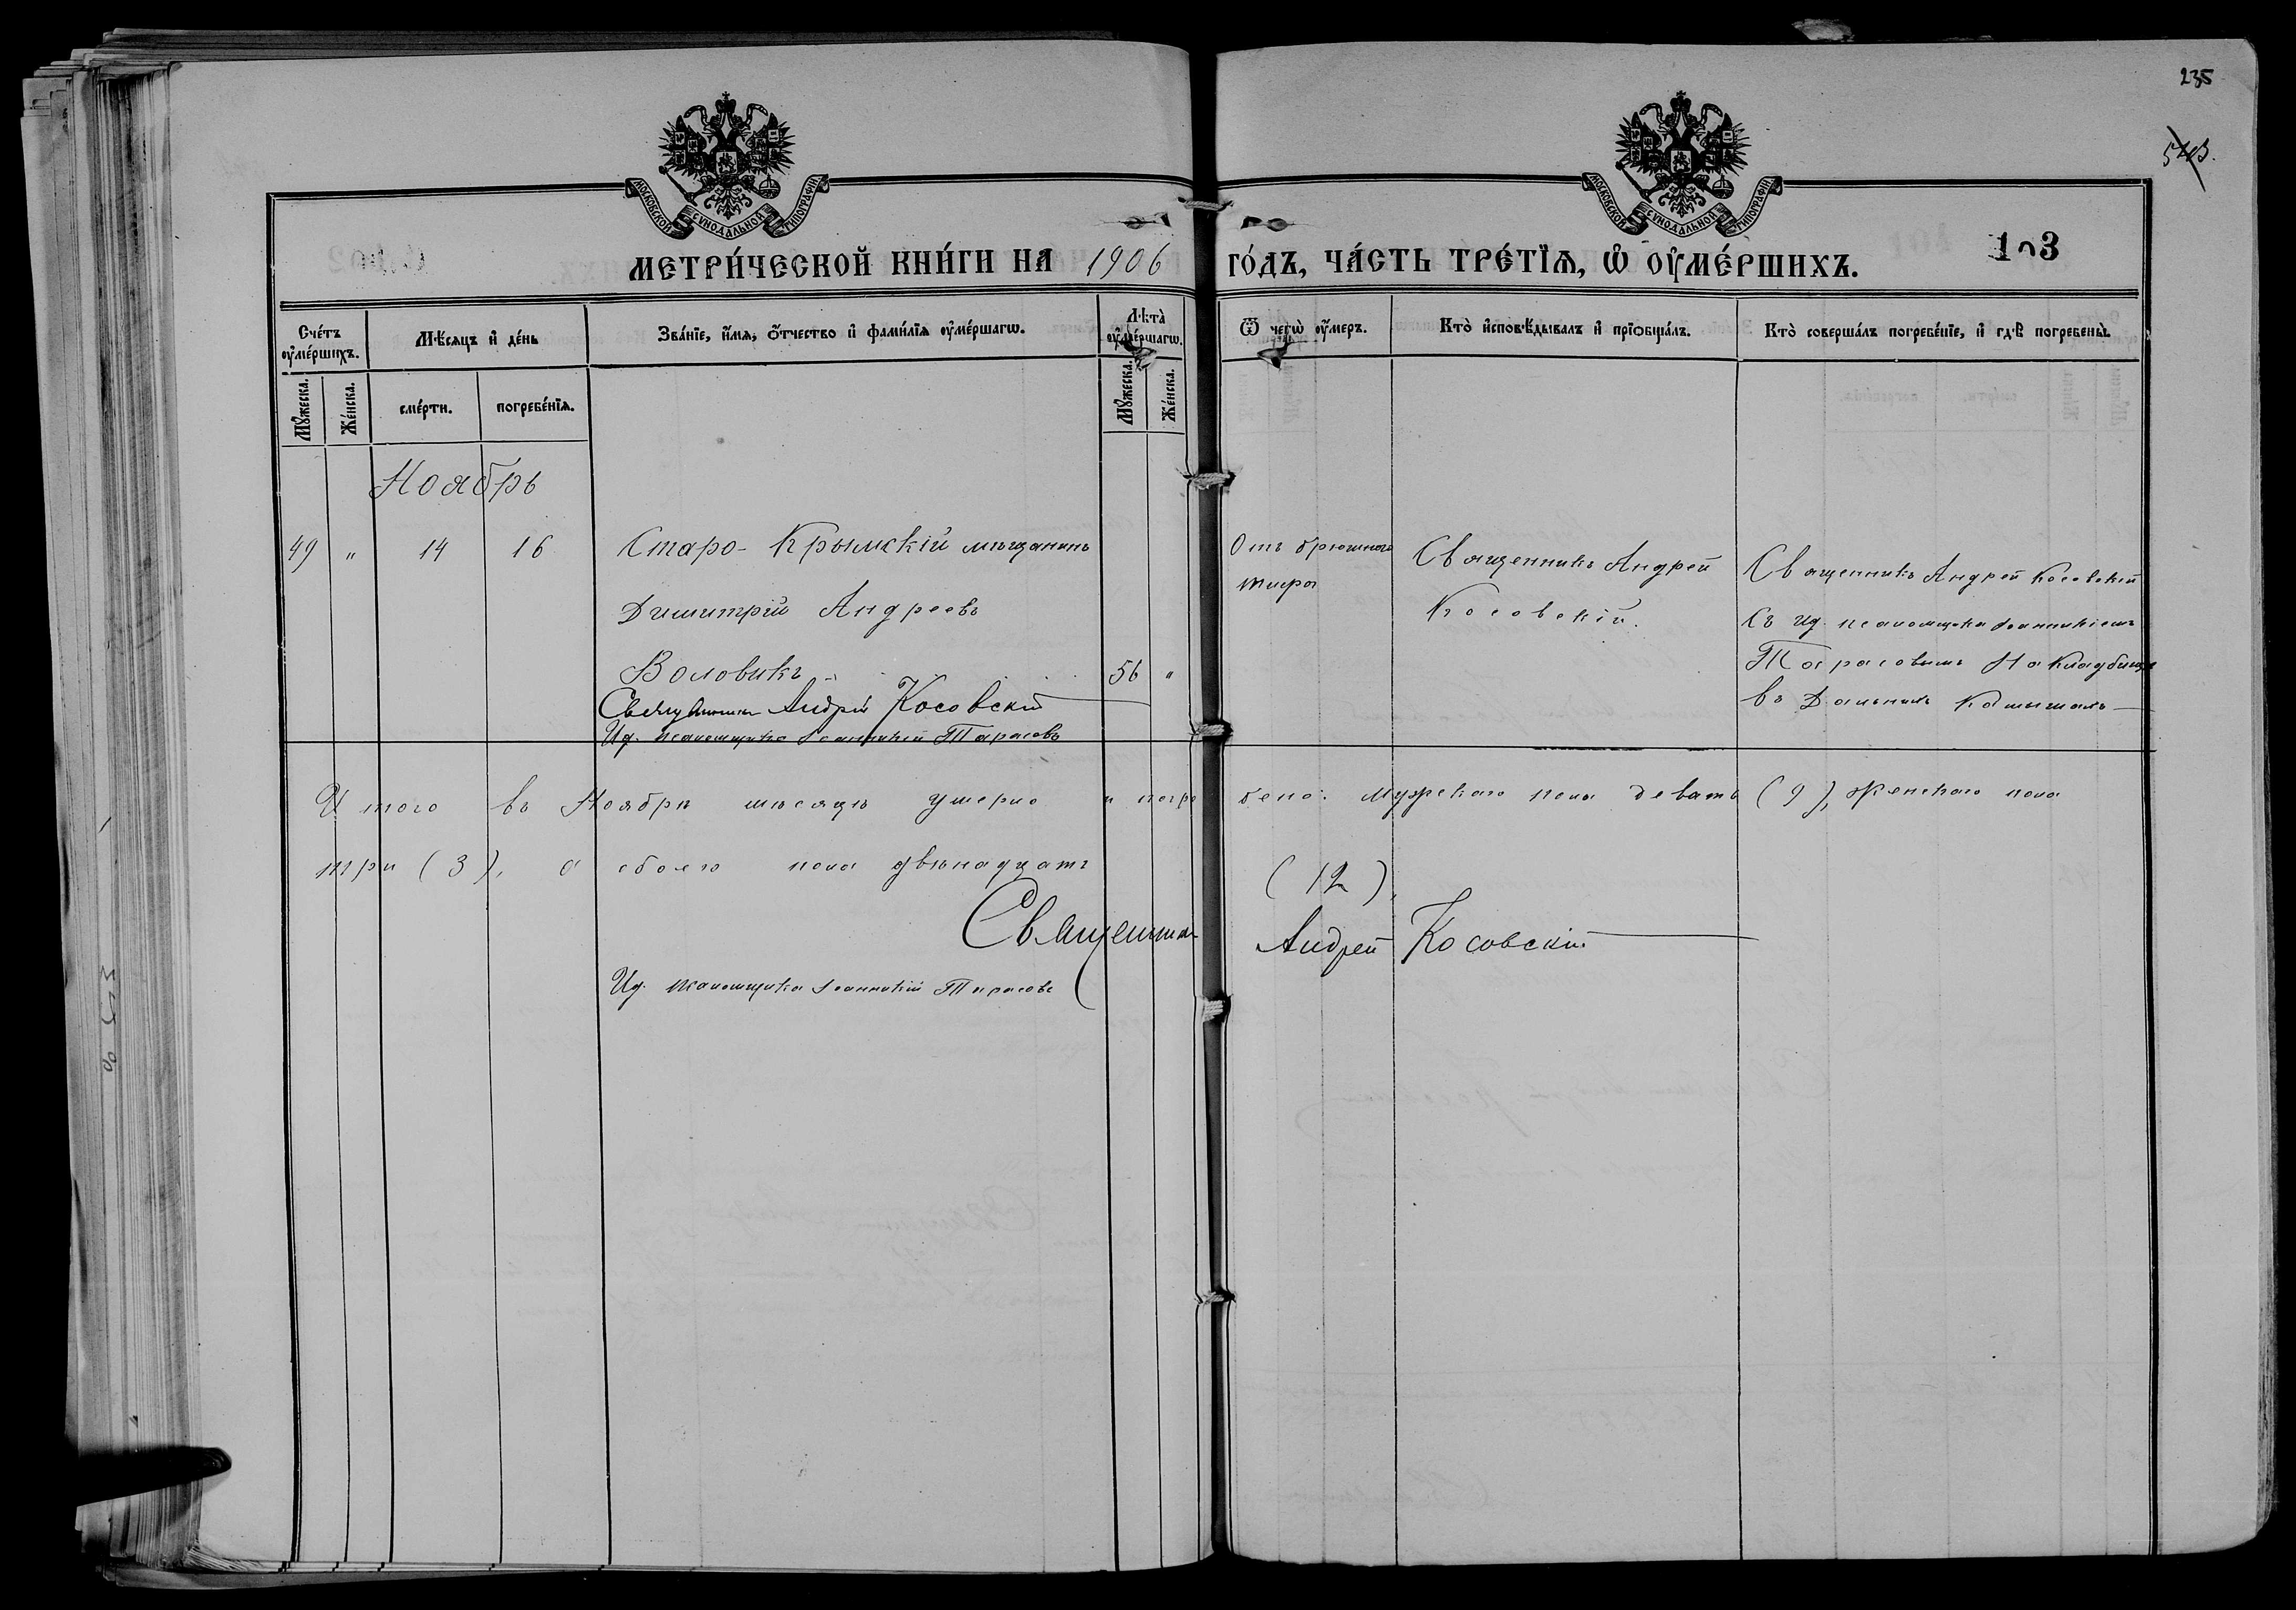 235
543.
МОСКОВСКОЙ СѴНОДАЛЬНОЙ ТИПОГРАФІИ
МОСКОВСКОЙ СѴНОДАЛЬНОЙ ТИПОГРАФІИ
МЕТРИ́ЧЕСКОЙ КНИ́ГИ НА 1906 ГО́ДЪ, ЧА́СТЬ ТРЕ́ТЇѦ, Ѡ҆ ОУ҆МЕ́РШИХЪ.
103
Сче́тъ оу҆ме́ршихъ.
Мѣ́сяцъ и҆ де́нь
Зва́нїе, и҆́мѧ, ѻ҆́тчество и҆ фами́лїѧ оу҆ме́ршагѡ.
Лѣ̀та оу҆ме́ршагѡ.
Ѿ чегѡ̀ оу҆́меръ.
Кто̀ и҆сповѣ́дывалъ и҆ прїѡбща́лъ.
Кто̀ соверша́лъ погребе́нїе, и҆ гдѣ̀ погребены̀.
Мꙋ́жеска.
Же́нска.
сме́рти.
погребе́нїѧ.
Мꙋ́жеска.
Же́нска.
Ноябрь
49 " 14 16 Старо-Крымскій мѣщанинъ
Димитрій Андреевъ
Воловикъ 56 "
Священникъ Андрей Косовскій
Ид. псаломщика Іоанникій Тарасовъ
Отъ брюшного
тифа
Священникъ Андрей
Косовскій.
Священникъ Андрей Косовскій
съ ид. псаломщика Іоанникіемъ
Тарасовымъ на кладбищѣ
въ Дальнихъ Камышахъ
Итого въ Ноябрѣ мѣсяцѣ умерло и погребено: мужскаго пола девять (9), женскаго пола
три (3), а обоего пола двѣнадцать (12).
Священникъ Андрей Косовскій
Ид. псаломщика Іоанникій Тарасовъ